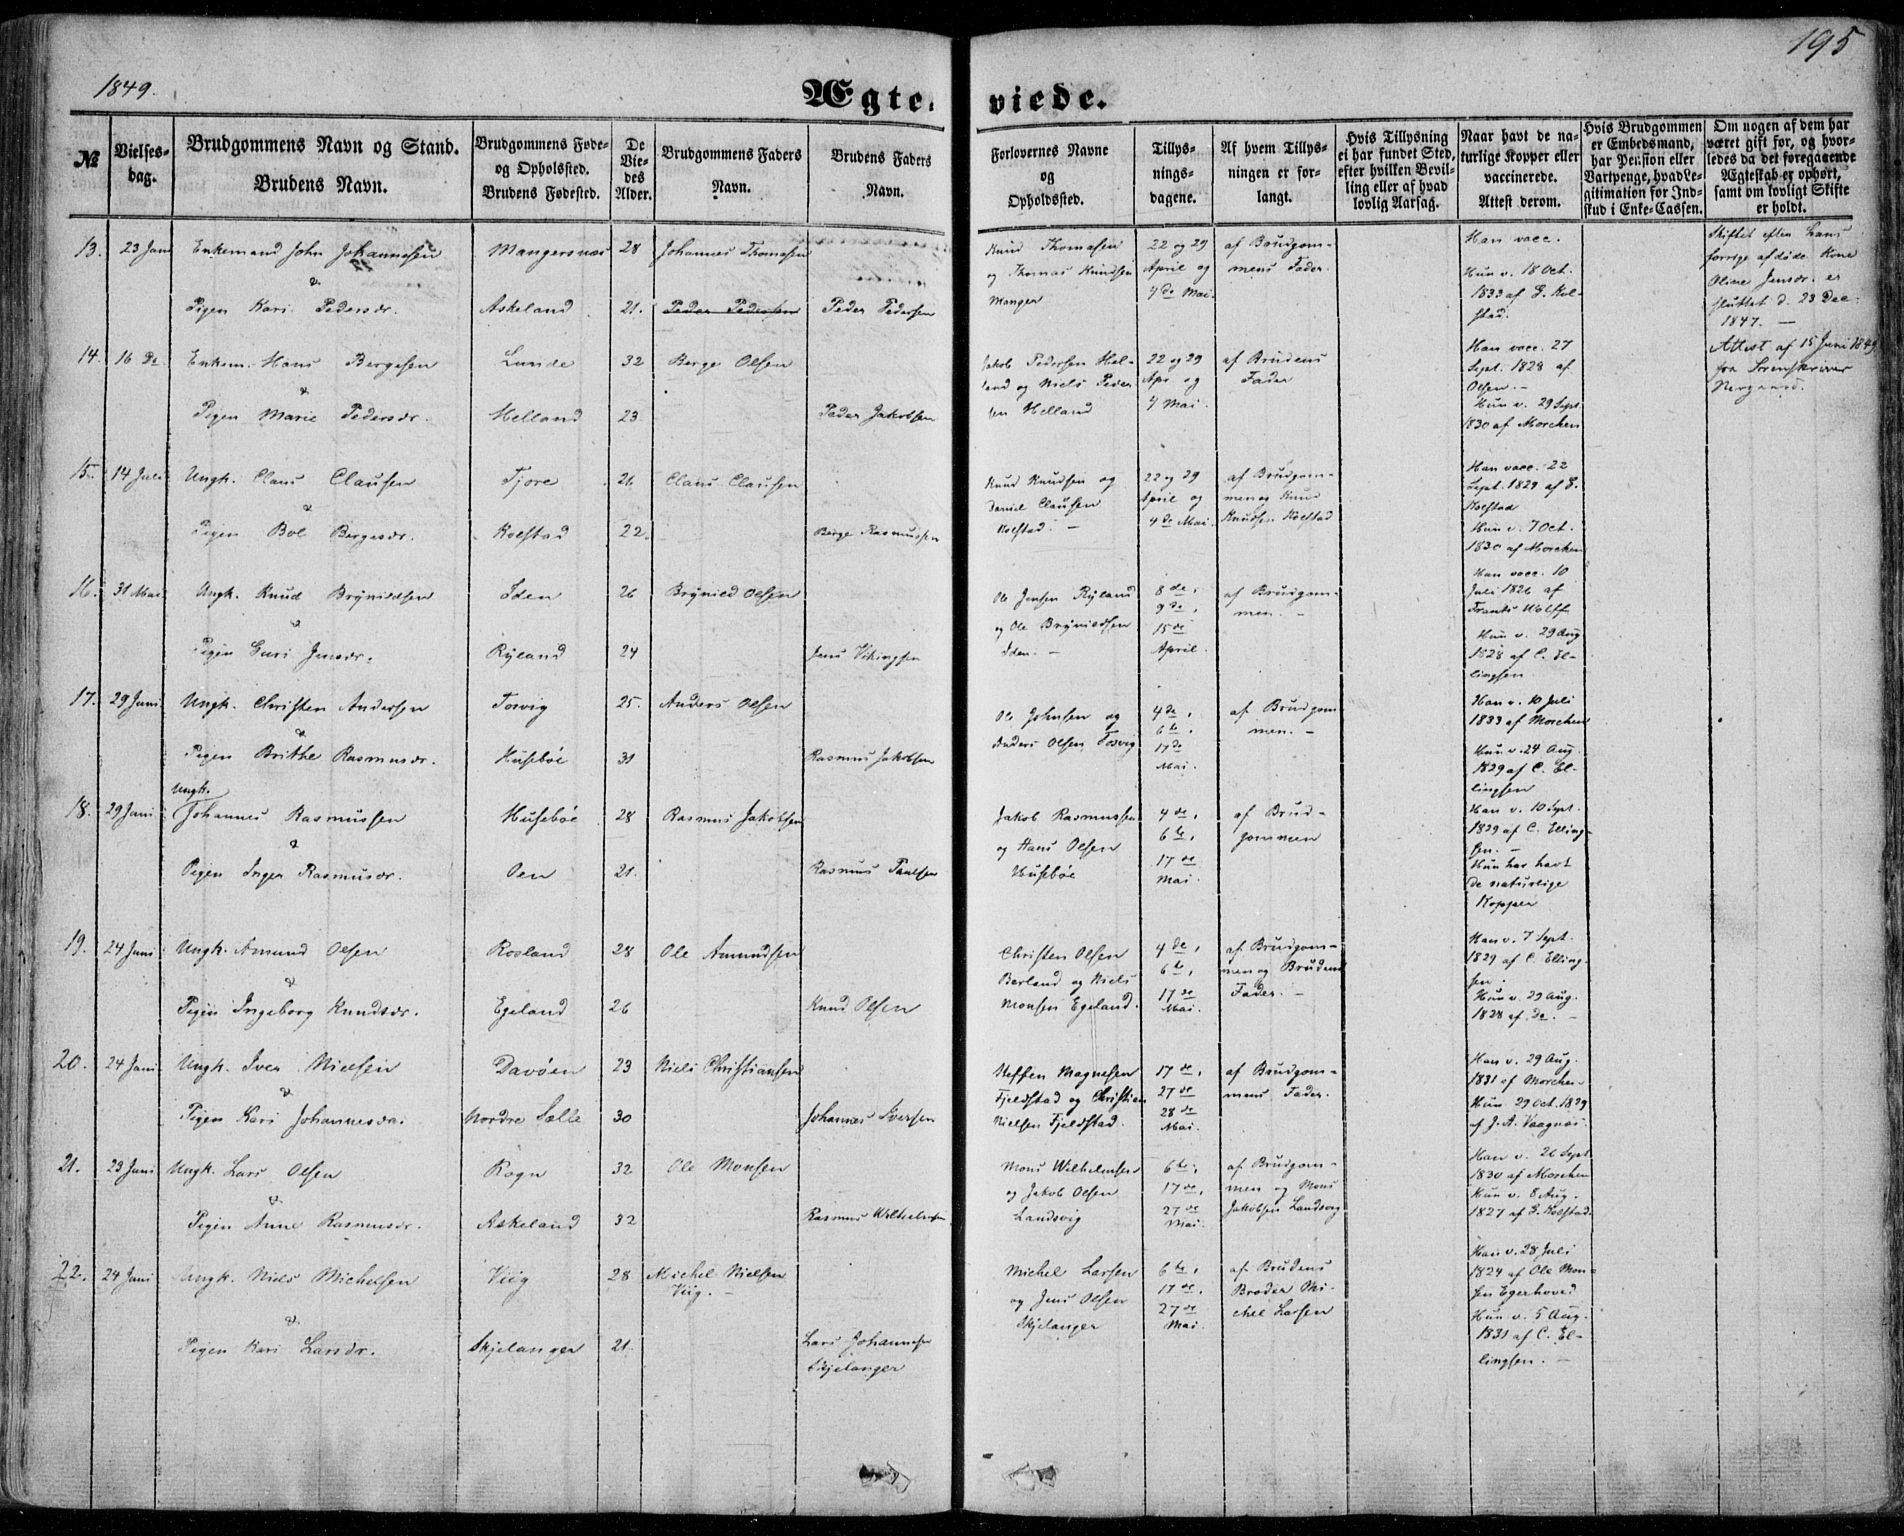 1849.
195
Ægteviede.
№
Vielses-
dag.
Brudgommens Navn og Stand.
Brudens Navn.
Brudgommens Føde-
og Opholssted.
Brudens Fødested.
De
Vie-
des
Alder.
Brudgommens Faders
Navn.
Brudens Faders
Navn.
Forlovernes Navne
og
Opholdssted.
Tillys-
nings-
dagene.
Af hvem Tillys-
ningen er for-
langt.
Hvis Tillysning
ei har fundet Sted,
efter hvilken Bevil-
ling eller af hvad
lovlig Aarsag.
Naar havt de na-
turlige Kopper eller
vaccinerede.
Attest derom.
Hvis Brudgommen
er Embedsmand,
har Pension eller
Vartpenge, hvad Le-
gitimation for Ind-
skud i Enke-Cassen.
Om nogen af dem har
været gift før, og hvor-
ledes da det foregaaende
Ægteskab er ophørt,
samt om lovligt Skifte
er holdt.
13. 23 Juni Enkemand John Johannesen Mangersnæs 28 Johannes Thomesen
&
Pigen Kari Pedersdr. Askeland 21. Peder Pedersen Peder Pedersen
Knud Thomasen
og Thomas Knudsen
Manger
22 og 29
April og
4de Mai.
af Brudgom-
mens Fader.
Han vacc.
Hun v. 18 Oct.
1833 af E. Kol-
stad.
Skiftet efter hans
forrige afdøde Kone
Oline Jensdr. er
sluttet d. 23 Dec.
1847. —
14. 16 De Enkem. Hans Bergesen Lunde 32 Berge Olsen
&
Pigen Marie Pedersdr. Helland 23 Peder Jakobsen
Jakob Pedersen Hel-
land og Niels Peder-
sen Helland
22 og 29
Apr. og
4 Mai.
af Brudens
Fader
Han vacc. 27
Sept. 1828 af
Olsen. —
Hun v. 29 Sept.
1830 af Morchen
Attest af 15 Juni 1849
fra Sorenskriver
Nergaard.
15. 14 Juli Ungk. Claus Clausen Tjore 26 Claus Clausen
Pigen Bol Bergesdr. Kolstad 22. Berge Rasmussen
Knud Knudsen og
Daniel Clausen
Kolstad. —
22 og 29
April og
4de Mai.
af Brudgom-
men og Knud
Knudsen Kolstad
Han vacc. 22
Sept. 1829 af E.
Kolstad
Hun v. 7 Oct.
1830 af Morchen
16. 31 Mai Ungk. Knud Brynildsen Iden 26 Brynild Olsen
&
Pigen Guri Jensdr. Ryland 24 Jens Vikingsen
Ole Jensen Ryland
og Ole Brynildsen
Iden. —
8de,
9de,
15de
April.
af Brudgom-
men. —
Han vacc. 10
Juli 1826 af
Frants Wolff
Hun v. 29 Aug
1828 af C. El-
lingsen
17. 29 Juni Ungk. Christen Andersen Tosvig 25. Anders Olsen
&
Pigen Brithe Rasmusdr. Husebøe 31 Rasmus Jakobsen
Ole Johnsen og
Anders Olsen Tosvig
4de,
6te,
17de
Mai.
af Brudgom-
men. —
Han v. 10 Juli
1833 af Morchen
Hun v. 24 Aug.
1829 af C. El-
lingsen
Ungk.
18. 29 Juni Johannes Rasmussen Husebøe 28 Rasmus Jakobsen
&
Pigen Inger Rasmusdr. Oen 21. Rasmus Paulsen
Jakob Rasmussen
og Hans Olsen
Husebøe
4de,
6te,
17de
Mai.
af Brud-
gommen
Han v. 10 Sept.
1829 af C. Elling-
sen. —
Hun har havt
de naturlige
Kopper
19. 24 Juni Ungk. Amund Olsen Rosland 28 Ole Amundsen
&
Pigen Ingeborg Knudsdr. Egeland 26 Knud Olsen
Christen Olsen
Berland og Niels
Monsen Egeland.
4de,
6te,
17de
Mai.
af Brudgom-
men og Brudens
Fader. —
Han v. 7 Sept.
1829 af C. Elling-
sen.
Hun v. 29 Aug.
1828 af do. —
20. 24 Juni Ungk. Iver Nielsen Davøen 23 Niels Christiansen
&
Pigen Kari Johannesdr. Nordre Sælle 30 Johannes Iversen
Steffen Magnesen
Fjeldstad og Christian
Nielsen Fjeldstad.
17de,
27de
28de
Mai.
af Brudgom-
mens Fader.
Han v. 29 Aug.
1831 af Morchen-
Hun 29 Oct. 1829
af J. A. Vaagnæs
21. 23 Juni Ungk. Lars Olsen Rogn 32 Ole Monsen
&
Pigen Anne Rasmusdr. Askeland 32 Rasmus Wilhelmsen
Mons Wilhelmsen
og Jakob Olsen
Landsvig
6te,
17de,
27de
Mai.
af Brudgom-
men og Mons
Jakobsen Landsvig
Han v. 26 Sept
1830 af Morchen
Hun v. 8 Aug.
1827 af E. Kolstad.
22. 24 Juni Ungk. Niels Michelsen Viig 28 Michel Nielsen
Viig. —
&
Pigen Kari Larsdr. Skjelanger 21. Lars Johannesen
Skjelanger
Michel Larsen
og Jens Olsen
Skjelanger
6te,
17de,
27de
Mai.
af Brudens
Broder Mi-
chel Larsen
Han v. 28 Juli
1824 af Ole Mon-
sen Egerhoved
Hun v. 5 Aug.
1831 af C. El-
lingsen. —